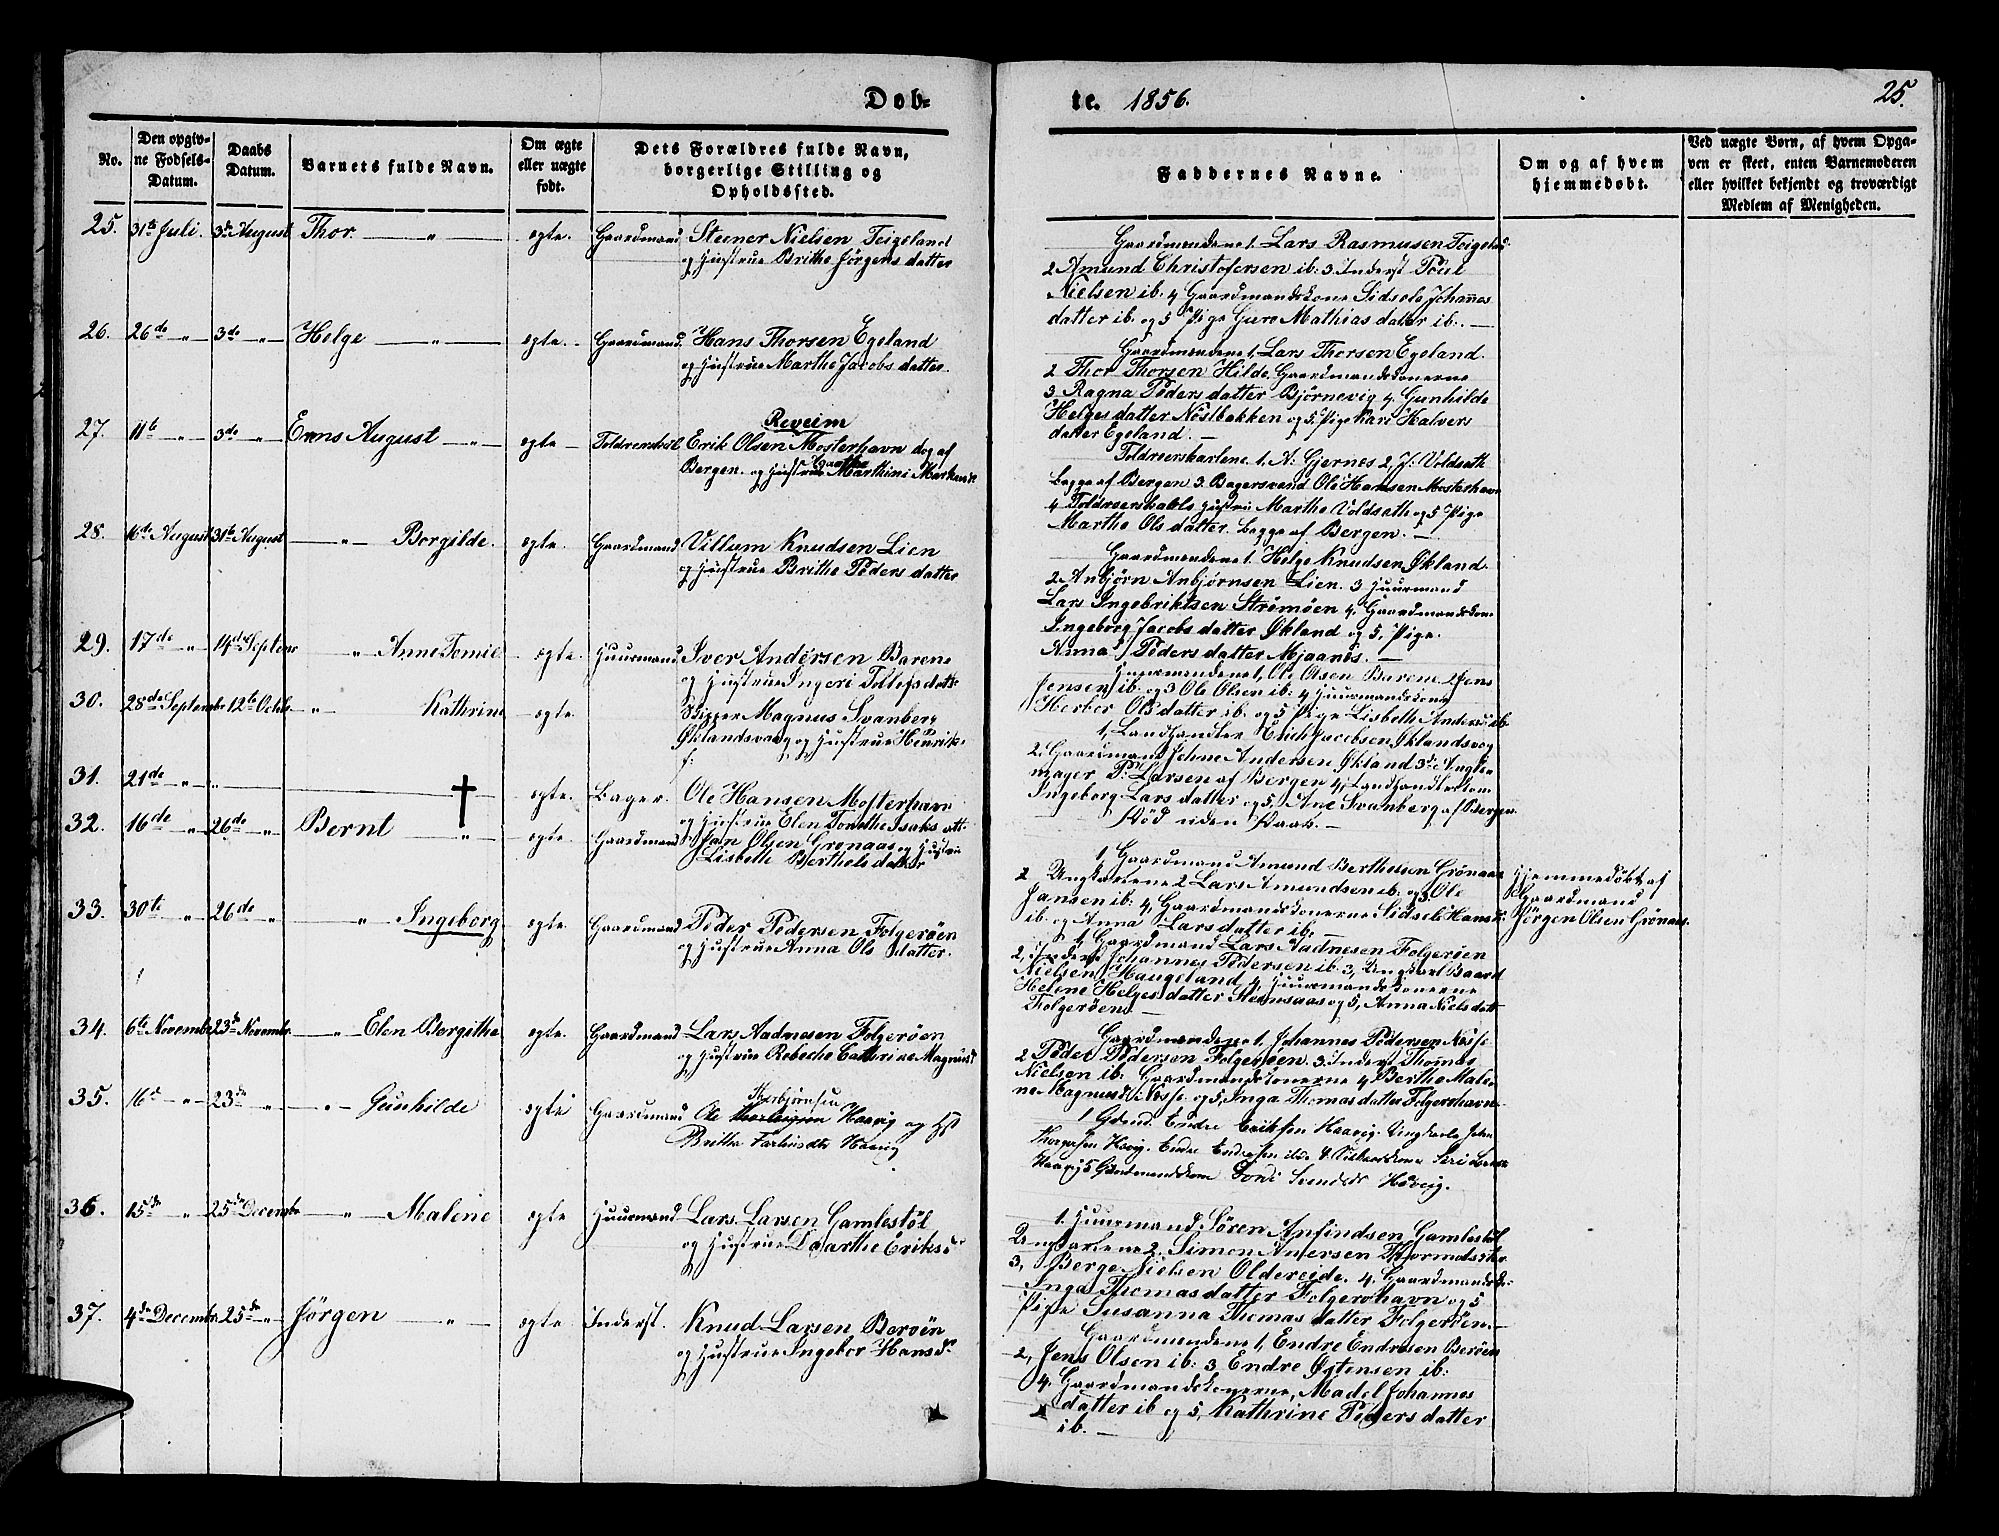 Døb-
te. 1856.
25.
No.
Den opgiv-
ne Fødsels-
Datum.
Daabs
Datum.
Barnets fulde Navn.
Om ægte
eller uægte
født.
Dets Forældres fulde Navn,
borgerlige Stilling og
Opholdssted.
Faddernes Navne.
Om og af hvem
hjemmedøbt.
Ved uægte Børn, af hvem Opga-
ven er skeet, enten Barnemoderen
eller hvilket bekjendt og troværdigt
Medlem af Menigheden.
25. 31te Juli. 3de August Thor. — " — ægte. Gaardmand Steener Nielsen Teigeland
og Hustrue Brithe Jørgens datter
Gaardmændene 1. Lars Rasmusen Teigeland
2 Amund Christofersen ib: 3. Inderst Poul
Nielsen ib. 4 Gaardmandskone Sidsele Johannes
datter ib. og 5 Pige Guro Mathias datter ib. —
26. 26de " 3de " Helge — " — ægte. Gaardmand. Hans Thorsen Egeland
og Hustrue Marthe Jacobs datter.
Gaardmændene 1, Lars Thorsen Egeland.
2 Thor Thorsen Hilde. Gaardmandskonerne
3 Ragna Peders datter Bjørnevig 4. Gunhilde
Helges datter Nøstbakken og 5. Pige Kari Halvers
datter Egeland. —
27. 11te " 3de " Enns August — " — ægte Reveim
Erik Olsen Mosterhavn dog af
Bergen. og Hustrue Marthini Markusd.
Toldroerskarlene. 1. A: Gjernes 2, J: Voldseth
begge af Bergen 3. Bagersvend Ole Hansen Mosterhavn
4 Toldroerskarls Hustru Marthe Voldseth og 5 Pige
Marthe Ols datter. begge af Bergen. —
28. 16de August 31te August — " — Borgilde. ægte. Gaardmand Villum Knudsen Lien
og Hustrue Brithe Peders datter
Gaardmændene 1. Helge Knudsen Økland.
2. Anbjørn Anbjørnsen Lien. 3 Huurmand
Lars Ingebriktsen Strømøen 4. Gaardmandskon.
Ingeborg Jacobs datter Økland og 5. Pige.
Anna Peders datter Mjaanes. —
29. 17de " 14de Septembr " Anne Tomie ægte. Huurmand Iver Andersen Barene
og Hustrue Ingeri Tellefs datt.
Huurmændene 1, Ole Olsen Barene. 2 Jens
Jensen ib. og 3 Ole Olsen ib: 4 Huurmandskone
Herber Ols datter ib. og 5 Pige Lisbeth Andersd ib.
30. 28de Septembr 12te Octob. " Kathrine ægte. Skipper Magnus Svanberg
Øklandsvaag og Hustrue Henrik-
1, Landhandler Erich Jacobsen Øklandsvog
2. Gaardmand Johne Andersen Økland 3de
mager P: Larsen af Bergen 4, Landhandlerkone
Ingeborg Lars datter og 5, Ane Svanberg af Bergen.
31. 21de " " — † — ægte. Bager. Ole Hansen Mosterhavn
og Hustrue Elen Tonethe Isaks
Død uden Daab. —
32. 16de " 26de " Bernt " ægte. Gaardmand Jan Olsen Grønaas og Hustru
Lisbeth Berthels datter
1, Gaardmand Amund Berthelsen Grønaas
Ungkarlene 2 Lars Amundsen ib. og 3. Ole
Jansen ib: 4 Gaardmandskonerne Sidsele Hans
ib. og Anna Lars datter ib. —
Hjemmedøbt af
Gaardmand
Jørgen Olsen Grønaas.
33. 30te " 26de " " Ingeborg ægte. Gaardmand Peder Pedersen Folgerøen
og Hustrue Anna Ols datter.
1 Gaardmand Lars Aadnesen Folgerøen
2, Inderst Johannes Pedersen ib. 3, Ungkarl Baard
Nielsen Haugeland, 4, Huurmandskonerne
Helene Helges datter Steensaas og 5, Anna Niels datt.
Folgerøen —
34. 6te Novembr 23de Novembr. " Elen Bergithe ægte. Gaardmand Lars Aadnesen Folgerøen
og Hustrue Rebeche Cathrine Magnusd.
Gaardmændene 1, Johannes Pedersen Nesse
2 Peder Pedersen Folgerøen. 3. Inderst Thomas
Nielsen ib: Gaardmandskonerne 4 Berthe Male-
ne Magnusd. Nesse og 5, Inga Thomas datter Folgerøhavn
35. 16de " 23de " " Gunhilde ægte Gaardmand Thorbjørnsen
Ole Haavig og Hst
Brithe Haavig
1 Gdmd. Endre Eriksen Haavig. Ungkarle John
Havig. Endre
Haavig 5 Gaardmandskone Haavig.
36. 15de " 25de Decembr — " — Malene ægte Huurmand Lars Larsen Gamlestøl
og Hustrue Daarthe Eriksd
1. Huurmand Søren Anfindsen Gamlestøl
Ungkarlene 2. Simon Andersen
3, Berge Nielsen Oldereide. 4. Gaardmandsk.
Inga Thomas datter Folgerøhavn og 5
Pige Susanna Thomas datter Folgerøen. —
37. 4de Decembr 25de " Jørgen — " — ægte Inderst. Knud Larsen Berøen
og Hustrue Ingebor Hansd.
Gaardmændene 1, Endre Endresen Berøen
2, Jens Olsen ib: 3 Endre Østensen ib:
4. Gaardmandskonerne, Madel Johannes
datter ib og 5, Kathrine Peders datter
ib. —